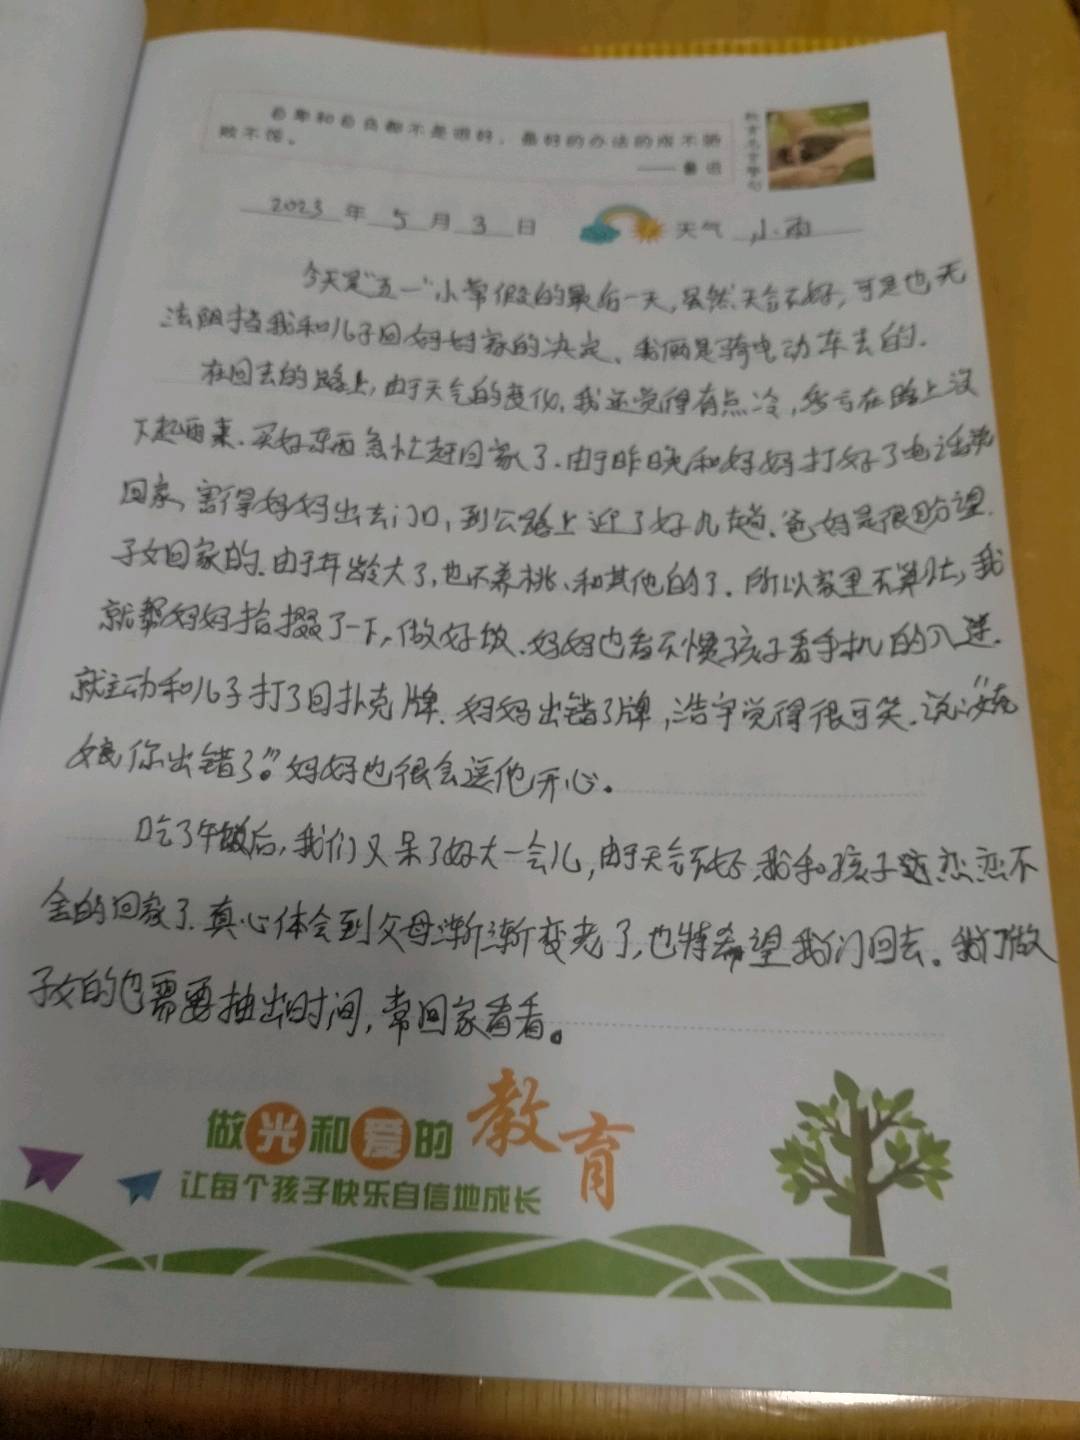 自卑和自负都不是很好，最好的办法的成不骄
败不馁。
——鲁迅
教育名言警句
2023 年 5 月 3 日 天气 小雨
今天是"五一"小常假的最后一天，虽然天气不好，可是也无
法阻挡我和儿子回妈妈家的决定、我俩是骑电动车去的.
在回去的路上，由于天气的变化，我还觉得有点冷，幸亏在路上没
下起雨来.买好东西急忙赶回家了.由于昨晚和妈妈打好了电话
回家，害得妈妈出去门口，到公路上迎了好几趟.爸妈是很盼望
子女回家的.由于年龄大了，也不养桃、和其他的了.所以家里不算忙，我
就帮妈妈拾掇了一下，做好饭.妈妈也看不惯孩子看手机的入迷.
就主动和儿子打了回扑克牌.妈妈出错了牌，浩宇觉得很可笑.说："姥
娘你出错了"。妈妈也很会逗他开心。
吃了午饭后，我们又呆了好大一会儿，由于天气不好，我和孩子恋恋不
舍的回家了.真心体会到父母渐渐变老了，也特希望我们回去。我们做
子女的也需要抽出时间，常回家看看。
做光和爱的教育
让每个孩子快乐自信地成长